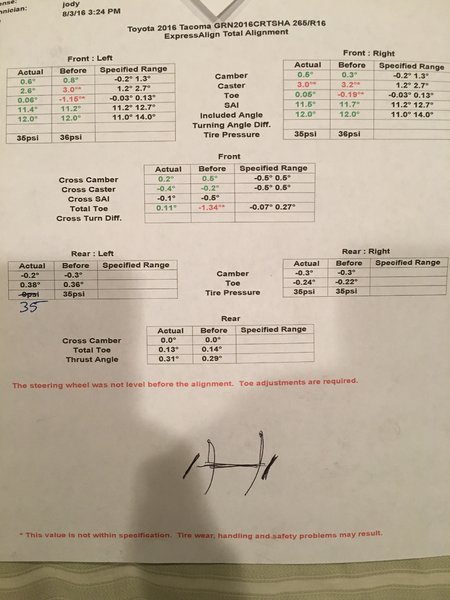 ense:
nician: jody
8/3/16 3:24 PM
Toyota 2016 Tacoma GRN2016CRTSHA 265/R16
ExpressAlign Total Alignment
Front : Left
Actual Before Specified Range
0.6° 0.8° -0.2° 1.3°
2.6° 3.0°* 1.2° 2.7°
0.06° -1.15°* -0.03° 0.13°
11.4° 11.2° 11.2° 12.7°
12.0° 12.0° 11.0° 14.0°
35psi 36psi
Camber
Caster
Toe
SAI
Included Angle
Turning Angle Diff.
Tire Pressure
Front : Right
Actual Before Specified Range
0.5° 0.3° -0.2° 1.3°
3.0°* 3.2°* 1.2° 2.7°
0.05° -0.19°* -0.03° 0.13°
11.5° 11.7° 11.2° 12.7°
12.0° 12.0° 11.0° 14.0°
35psi 36psi
Front
Actual Before Specified Range
Cross Camber 0.2° 0.5° -0.5° 0.5°
Cross Caster -0.4° -0.2° -0.5° 0.5°
Cross SAI -0.1° -0.5°
Total Toe 0.11° -1.34°* -0.07° 0.27°
Cross Turn Diff.
Rear : Left
Actual Before Specified Range
-0.2° -0.3°
0.38° 0.36°
0psi 35psi
35
Camber
Toe
Tire Pressure
Rear : Right
Actual Before Specified Range
-0.3° -0.3°
-0.24° -0.22°
35psi 35psi
Rear
Actual Before Specified Range
Cross Camber 0.0° 0.0°
Total Toe 0.13° 0.14°
Thrust Angle 0.31° 0.29°
The steering wheel was not level before the alignment. Toe adjustments are required.
* This value is not within specification. Tire wear, handling and safety problems may result.